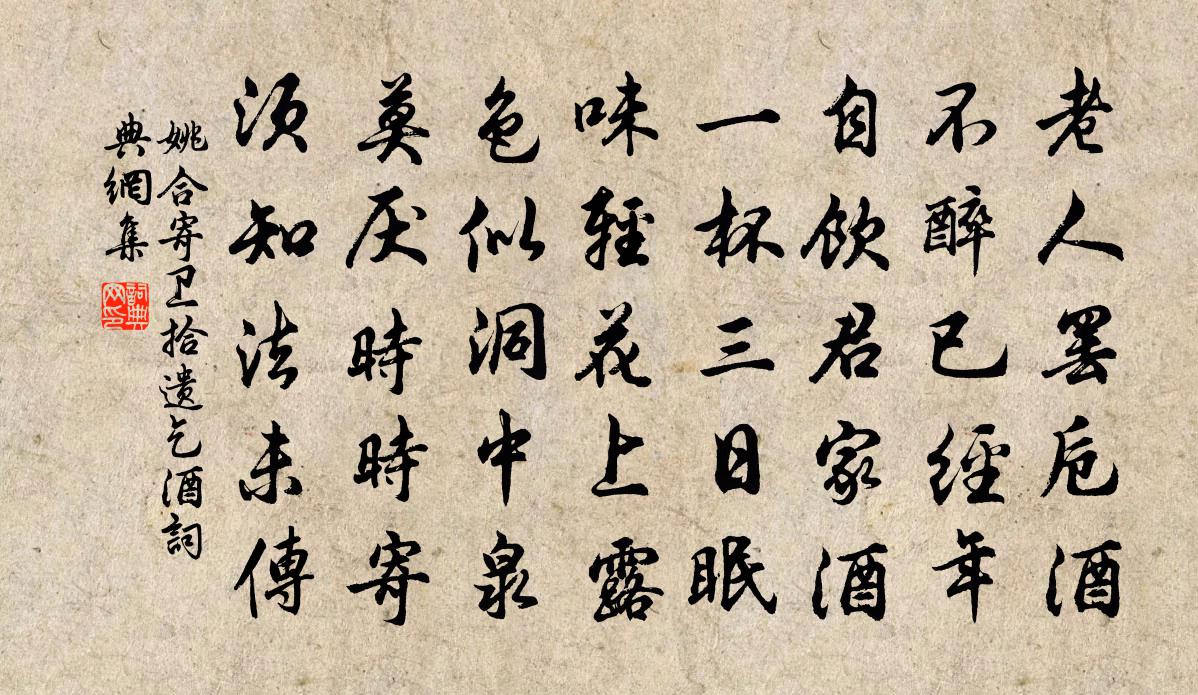 老人罢卮酒
不醉已經年
自飲君家酒
一杯三日眠
味輕花上露
色似洞中泉
莫厌時時寄
須知法未傳
姚合寄卫拾遺乞酒詞
典網集
詞典网印